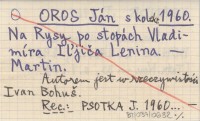 OROS Ján s kol. 1960.
Na Rysy po stopách Vladi-
míra Iľjiča Lenina. —
Martin.
Autorem jest w rzeczywistości
Ivan Bohuš.
Rec.: PSOTKA J. 1960...—